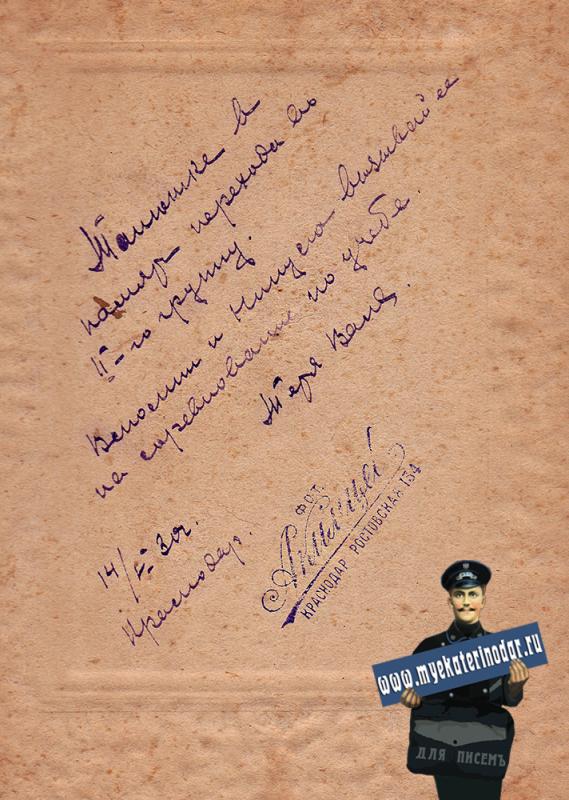 Танюшке в
память перехода во
II-ю группу.
Вспомни и Нинусю вызывай ее
на соревнование по учебе.
Тетя Валя.
14/V-30г.
Краснодар.
ФОТ.
КРАСНОДАР РОСТОВСКАЯ 134
www.myekaterinodar.ru
ДЛЯ ПИСЕМЪ